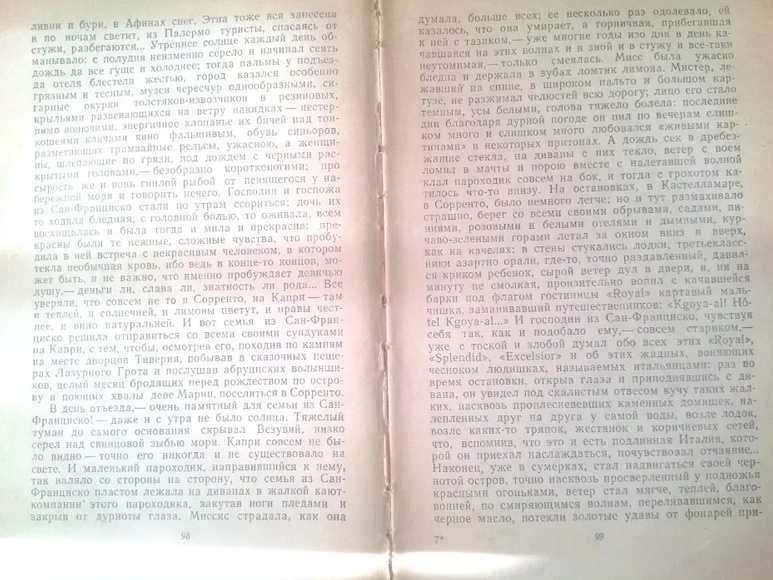 ливни и бури, в Афинах снег, Этна тоже вся занесена
и по ночам светит, из Палермо туристы, спасаясь от
стужи, разбегаются... Утреннее солнце каждый день об-
манывало: с полудня неизменно серело и начинал сеять
дождь да все гуще и холоднее; тогда пальмы у подъез-
да отеля блестели жестью, город казался особенно
грязным и тесным, музеи чересчур однообразными, си-
гарные окурки толстяков-извозчиков в резиновых,
крыльями развевающихся на ветру накидках — нестер-
пимо вонючими, энергичное хлопанье их бичей над тон-
кошеими клячами явно фальшивым, обувь синьоров,
разметающих трамвайные рельсы, ужасною, а женщи-
ны, шлепающие по грязи, под дождем с черными рас-
крытыми головами,— безобразно коротконогими; про
сырость же и вонь гнилой рыбой от пенящегося у на-
бережной моря и говорить нечего. Господин и госпожа
из Сан-Франциско стали по утрам ссориться; дочь их
то ходила бледная, с головной болью, то оживала, всем
восхищалась и была тогда и мила и прекрасна: пре-
красны были те нежные, сложные чувства, что пробу-
дила в ней встреча с некрасивым человеком, в котором
текла необычная кровь, ибо ведь в конце-то концов, мо-
жет быть, и не важно, что именно пробуждает девичью
душу,— деньги ли, слава ли, знатность ли рода... Все
уверяли, что совсем не то в Сорренто, на Капри — там
и теплей, и солнечней, и лимоны цветут, и нравы чест-
нее, и вино натуральней. И вот семья из Сан-Фран-
циско решила отправиться со всеми своими сундуками
на Капри, с тем, чтобы, осмотрев его, походив по камням
на месте дворцов Тиверия, побывав в сказочных пеще-
рах Лазурного Грота и послушав абруццских волынщи-
ков, целый месяц бродящих перед рождеством по остро-
ву и поющих хвалы деве Марии, поселиться в Сорренто.
В день отъезда,— очень памятный для семьи из Сан-
Франциско! — даже и с утра не было солнца. Тяжелый
туман до самого основания скрывал Везувий, низко
серел над свинцовой зыбью моря. Капри совсем не бы-
ло видно — точно его никогда и не существовало на
свете. И маленький пароходик, направившийся к нему,
так валяло со стороны на сторону, что семья из Сан-
Франциско пластом лежала на диванах в жалкой кают-
компании этого пароходика, закутав ноги пледами и
закрыв от дурноты глаза. Миссис страдала, как она
98
думала, больше всех; ее несколько раз одолевало, ей
казалось, что она умирает, а горничная, прибегавшая
к ней с тазиком,— уже многие годы изо дня в день ка-
чавшаяся на этих волнах и в зной и в стужу и все-таки
неутомимая,— только смеялась. Мисс была ужасно
бледна и держала в зубах ломтик лимона. Мистер, ле-
жавший на спине, в широком пальто и большом кар-
тузе, не разжимал челюстей всю дорогу; лицо его стало
темным, усы белыми, голова тяжело болела: последние
дни благодаря дурной погоде он пил по вечерам слиш-
ком много и слишком много любовался «живыми кар-
тинами» в некоторых притонах. А дождь сек в дребез-
жащие стекла, на диваны с них текло, ветер с воем
ломил в мачты и порою вместе с налетавшей волной
клал пароходик совсем на бок, и тогда с грохотом ка-
тилось что-то внизу. На остановках, в Кастелламаре,
в Сорренто, было немного легче; но и тут размахивало
страшно, берег со всеми своими обрывами, садами, пи-
ниями, розовыми и белыми отелями и дымными, кур-
чаво-зелеными горами летал за окном вниз и вверх,
как на качелях; в стены стукались лодки, третьекласс-
ники азартно орали, где-то, точно раздавленный, давил-
ся криком ребенок, сырой ветер дул в двери, и, ни на
минуту не смолкая, пронзительно вопил с качавшейся
барки под флагом гостиницы «Royal» картавый маль-
чишка, заманивавший путешественников: «Kgoya-al! Hô-
tel Kgoya-al...» И господин из Сан-Франциско, чувствуя
себя так, как и подобало ему,— совсем стариком,—
уже с тоской и злобой думал обо всех этих «Royal»,
«Splendid», «Excelsior» и об этих жадных, воняющих
чесноком людишках, называемых итальянцами; раз во
время остановки, открыв глаза и приподнявшись с ди-
вана, он увидел под скалистым отвесом кучу таких жал-
ких, насквозь проплесневевших каменных домишек, на-
лепленных друг на друга у самой воды, возле лодок,
возле каких-то тряпок, жестянок и коричневых сетей,
что, вспомнив, что это и есть подлинная Италия, кото-
рой он приехал наслаждаться, почувствовал отчаяние...
Наконец, уже в сумерках, стал надвигаться своей чер-
нотой остров, точно насквозь просверленный у подножья
красными огоньками, ветер стал мягче, теплей, благо-
вонней, по смиряющимся волнам, переливавшимся, как
черное масло, потекли золотые удавы от фонарей при-
7* 99